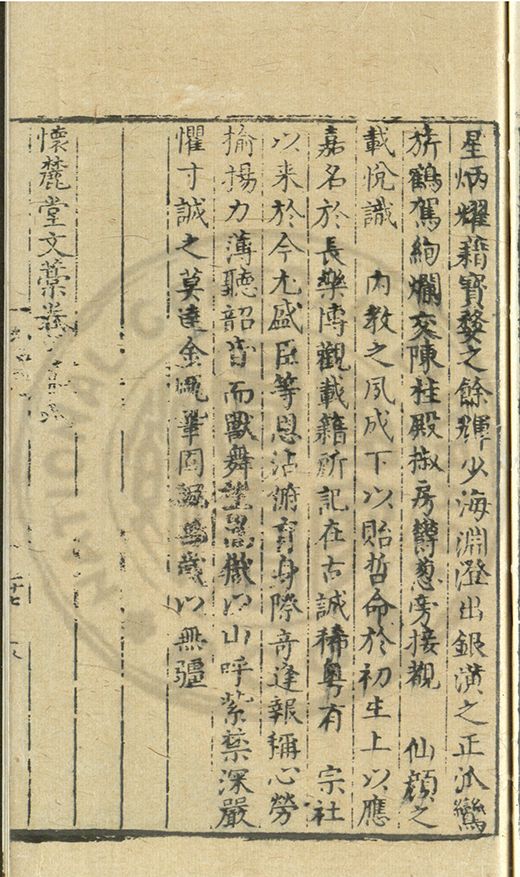 星炳耀藉寳婺之餘輝少海淵澄出銀潢之正𣲖鸞
旂鶴駕絢爛交陳桂殿椒房欝葱旁接觀 仙顔之
載悅識 内教之夙成下以貽哲命於初生上以應
嘉名於長樂博觀載籍所記在古誠稀粤有 宗社
以来於今尤盛臣等恩沾俯育身際竒逢報稱心勞
揄揚力薄聽韶音而獸舞望嵩嶽以山呼紫禁深嚴
懼寸誠之莫達金甌鞏固誠萬歳以無疆
懷麓堂文藁卷
二十七